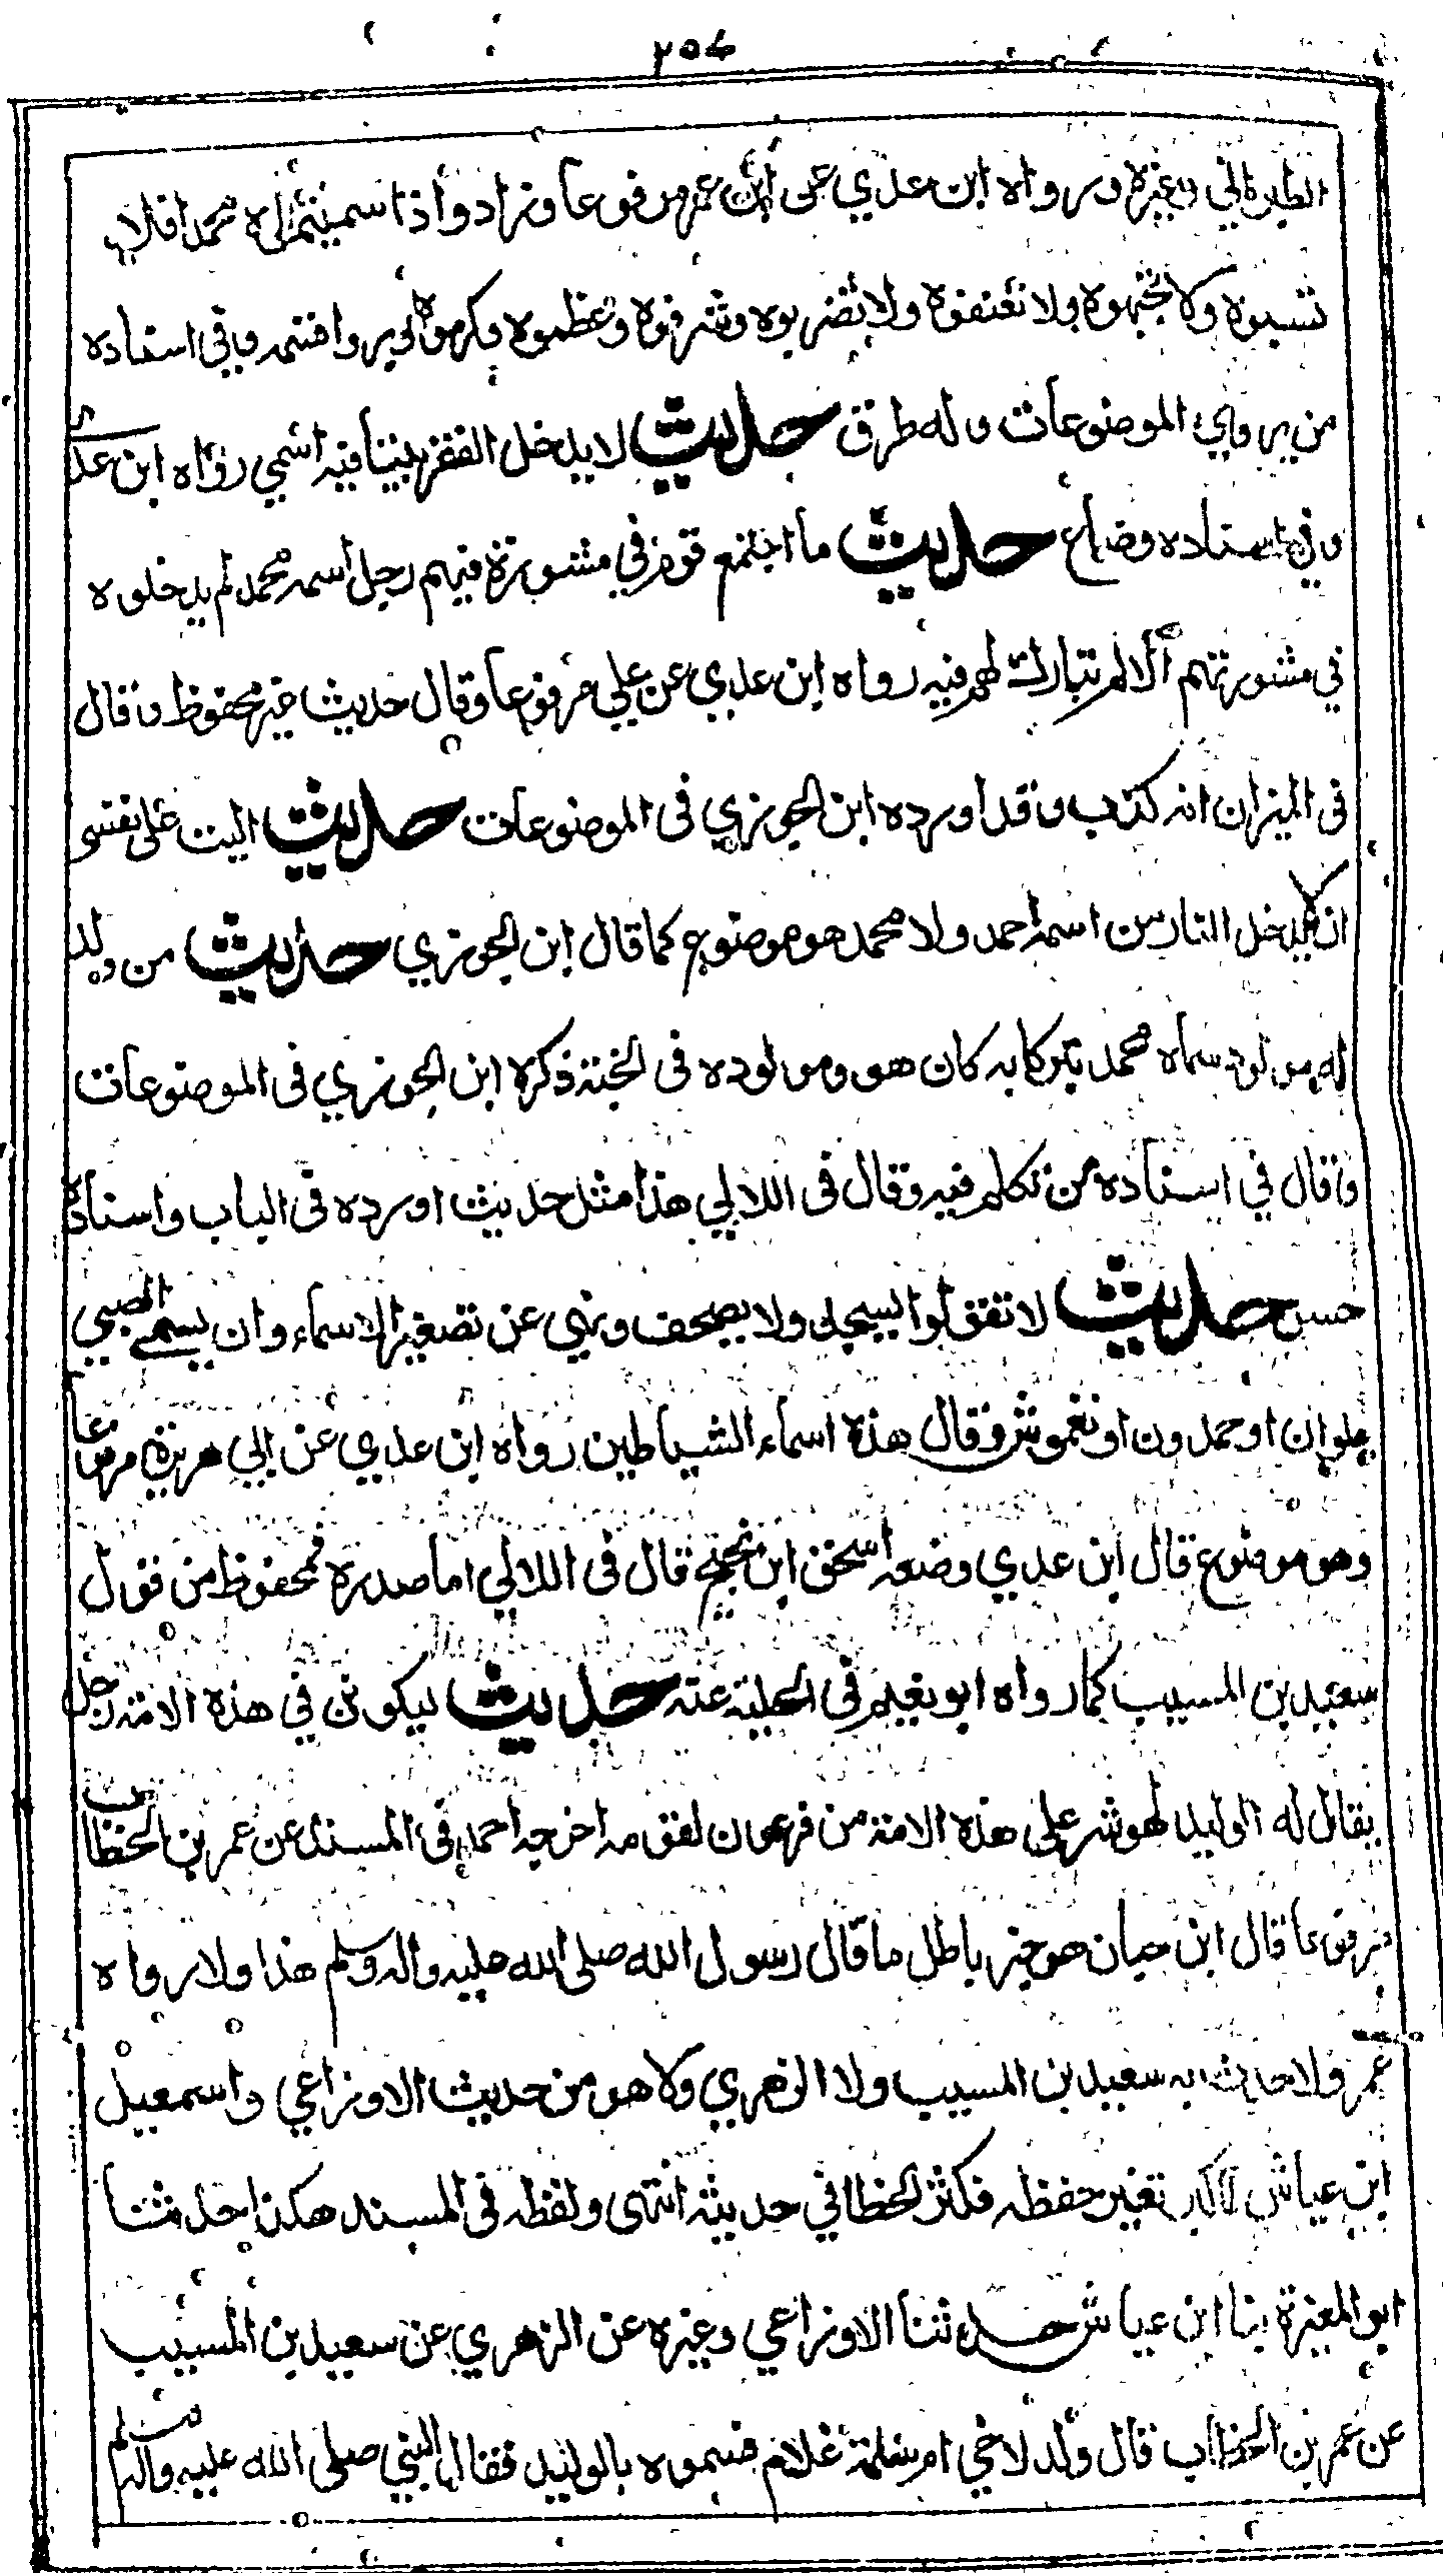 الطبراني وغيره ورواه ابن عدي عن ابن عمر مرفوعا وزاد واذا سميتموه محمدا فلا
تسبوه ولا تجبهوه ولا تعنفوه ولا تضربوه وشرفوه وعظموه وكرموه وبروا قسمه وفي اسناده
من يروي الموضوعات وله طرق حديث لا يدخل الفقر بيتا فيه اسمي رواه ابن عدي
وفي اسناده وضاع حديث ما اجتمع قوم في مشورة فيهم رجل اسمه محمد لم يدخلوه
في مشورتهم الا لم يتبارك لهم فيه رواه ابن عدي عن علي مرفوعا وقال حديث غير محفوظ وقال
في الميزان انه كذب وقد اورده ابن الجوزي في الموضوعات حديث اليت على نفسي
ان لا يدخل النار من اسمه احمد ولا محمد هو موضوع كما قال ابن الجوزي حديث من ولد
له مولود سماه محمد تبركا به كان هو ومولوده في الجنة ذكره ابن الجوزي في الموضوعات
وقال في اسناده من تكلم فيه وقال في اللالي هذا مثل حديث اورده في الباب واسناده
حسن حديث لا تقولوا مسيجد ولا مصيحف ونهي عن تصغير الاسماء وان يسمى الصبي
علوان او حمدون او نغموش وقال هذه اسماء الشياطين رواه ابن عدي عن ابي هريرة مرفوعا
وهو موضوع قال ابن عدي وضعه اسحق ابن نجيح قال في اللالي اما صدره فمحفوظ من قول
سعيد بن المسيب كما رواه ابو نعيم في الحلية عنه حديث ليكونن في هذه الامة رجل
يقال له الوليد لهو شر على هذه الامة من فرعون لقومه اخرجه احمد في المسند عن عمر بن الخطاب
مرفوعا قال ابن حبان هو خبر باطل ما قال رسول الله صلى الله عليه واله وسلم هذا ولا رواه
عمر ولا حدث به سعيد بن المسيب ولا الزهري ولا هو من حديث الاوزاعي واسمعيل
ابن عياش لما كبر تغير حفظه فكثر الخطا في حديثه انتهى ولفظه في المسند هكذا حدثنا
ابو المغيرة ثنا ابن عياش حدثنا الاوزاعي وغيره عن الزهري عن سعيد بن المسيب
عن عمر بن الخطاب قال ولد لاخي ام سلمة غلام فسموه بالوليد فقال النبي صلى الله عليه واله وسلم